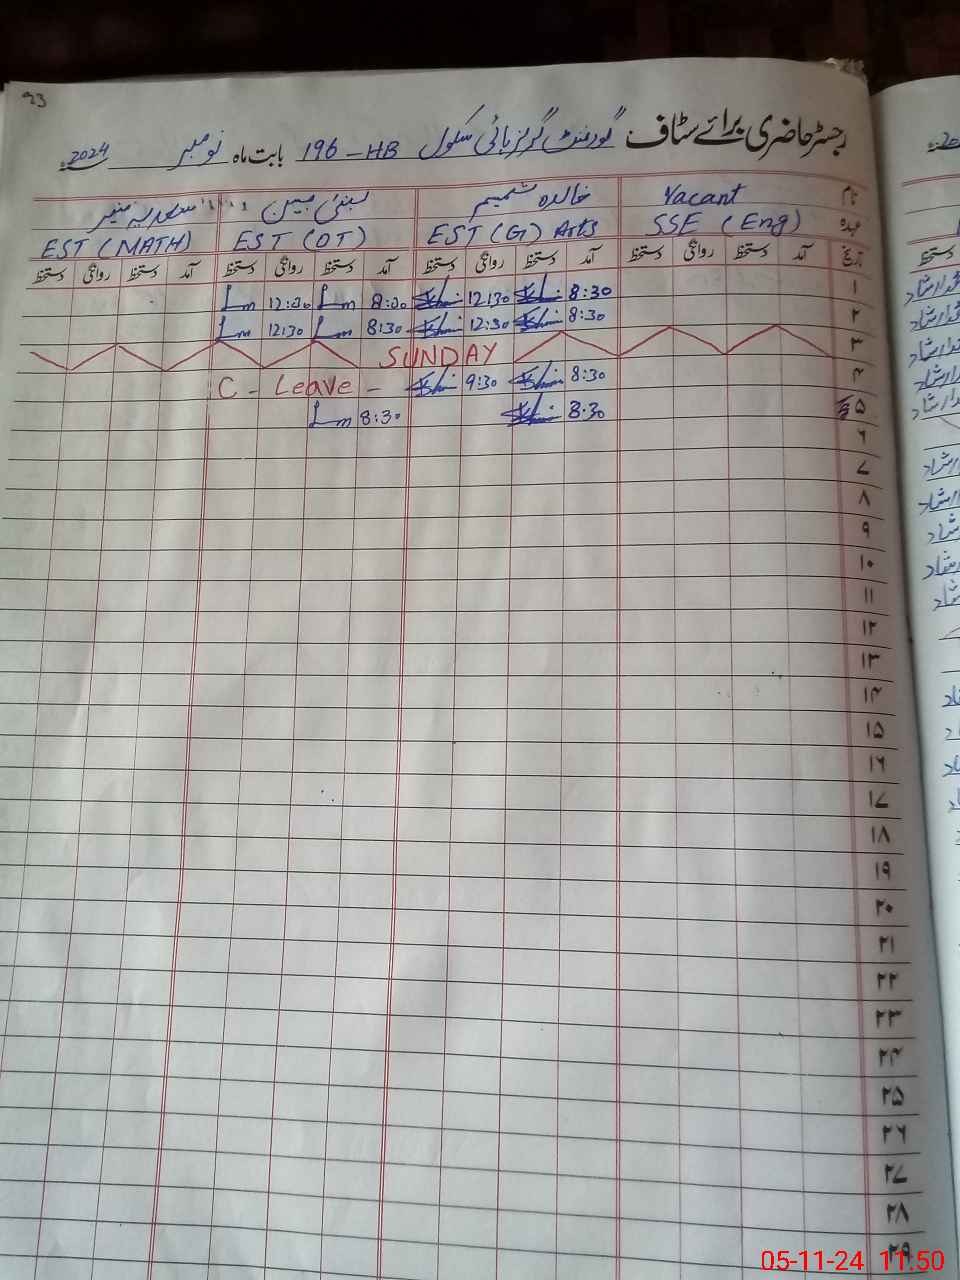 93
رجسٹر حاضری برائے سٹاف گورنمنٹ گرلز ہائی سکول 196-HB بابت ماہ نومبر 2024ء
نام Vacant خالدہ شمیم لبنیٰ مبین سعدیہ منیر
عہدہ SSE (Eng) EST (G) Arts EST (OT) EST (MATH)
تاریخ آمد دستخط روانگی دستخط آمد دستخط روانگی دستخط آمد دستخط روانگی دستخط آمد دستخط روانگی دستخط
۱ 8:30 12:30 8:00 Lm 12:30 Lm
۲ 8:30 12:30 8:30 Lm 12:30 Lm
۳ SUNDAY
۴ 8:30 9:30 C - Leave -
۵ 8:30 8:30 Lm
۶
۷
۸
۹
۱۰
۱۱
۱۲
۱۳
۱۴
۱۵
۱۶
۱۷
۱۸
۱۹
۲۰
۲۱
۲۲
۲۳
۲۴
۲۵
۲۶
۲۷
۲۸
۲۹
05-11-24 11:50